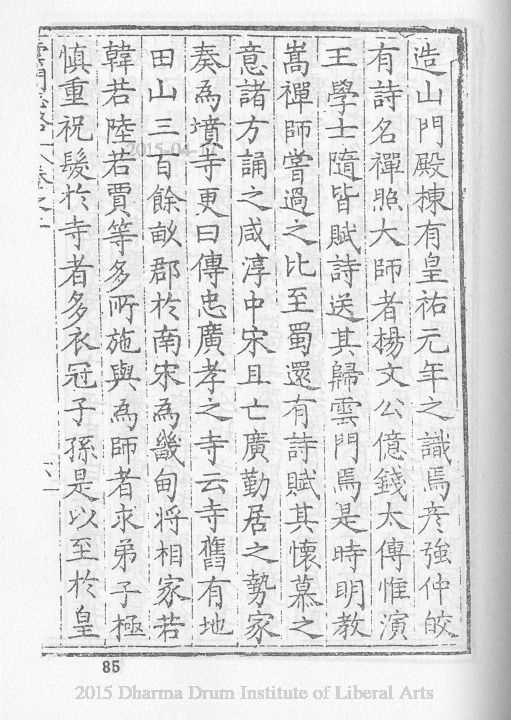 造山門殿棟有皇祐元年之識焉彦強仲皎
有詩名禪照大師者楊文公億錢太傅惟演
王學士隨皆賦詩送其歸雲門焉是時明教
嵩禪師嘗過之比至蜀還有詩賦其懷慕之
意諸方誦之咸淳中宋且亡廣勤居之勢家
奏為墳寺更曰傳忠廣孝之寺云寺舊有地
田山三百餘畝郡於南宋為畿甸将相家若
韓若陸若賈等多所施與為師者求弟子極
慎重祝髮於寺者多衣冠子孫是以至於皇
雲門志略 卷之
六
2015-04
85
2015 Dharma Drum Institute of Liberal Arts